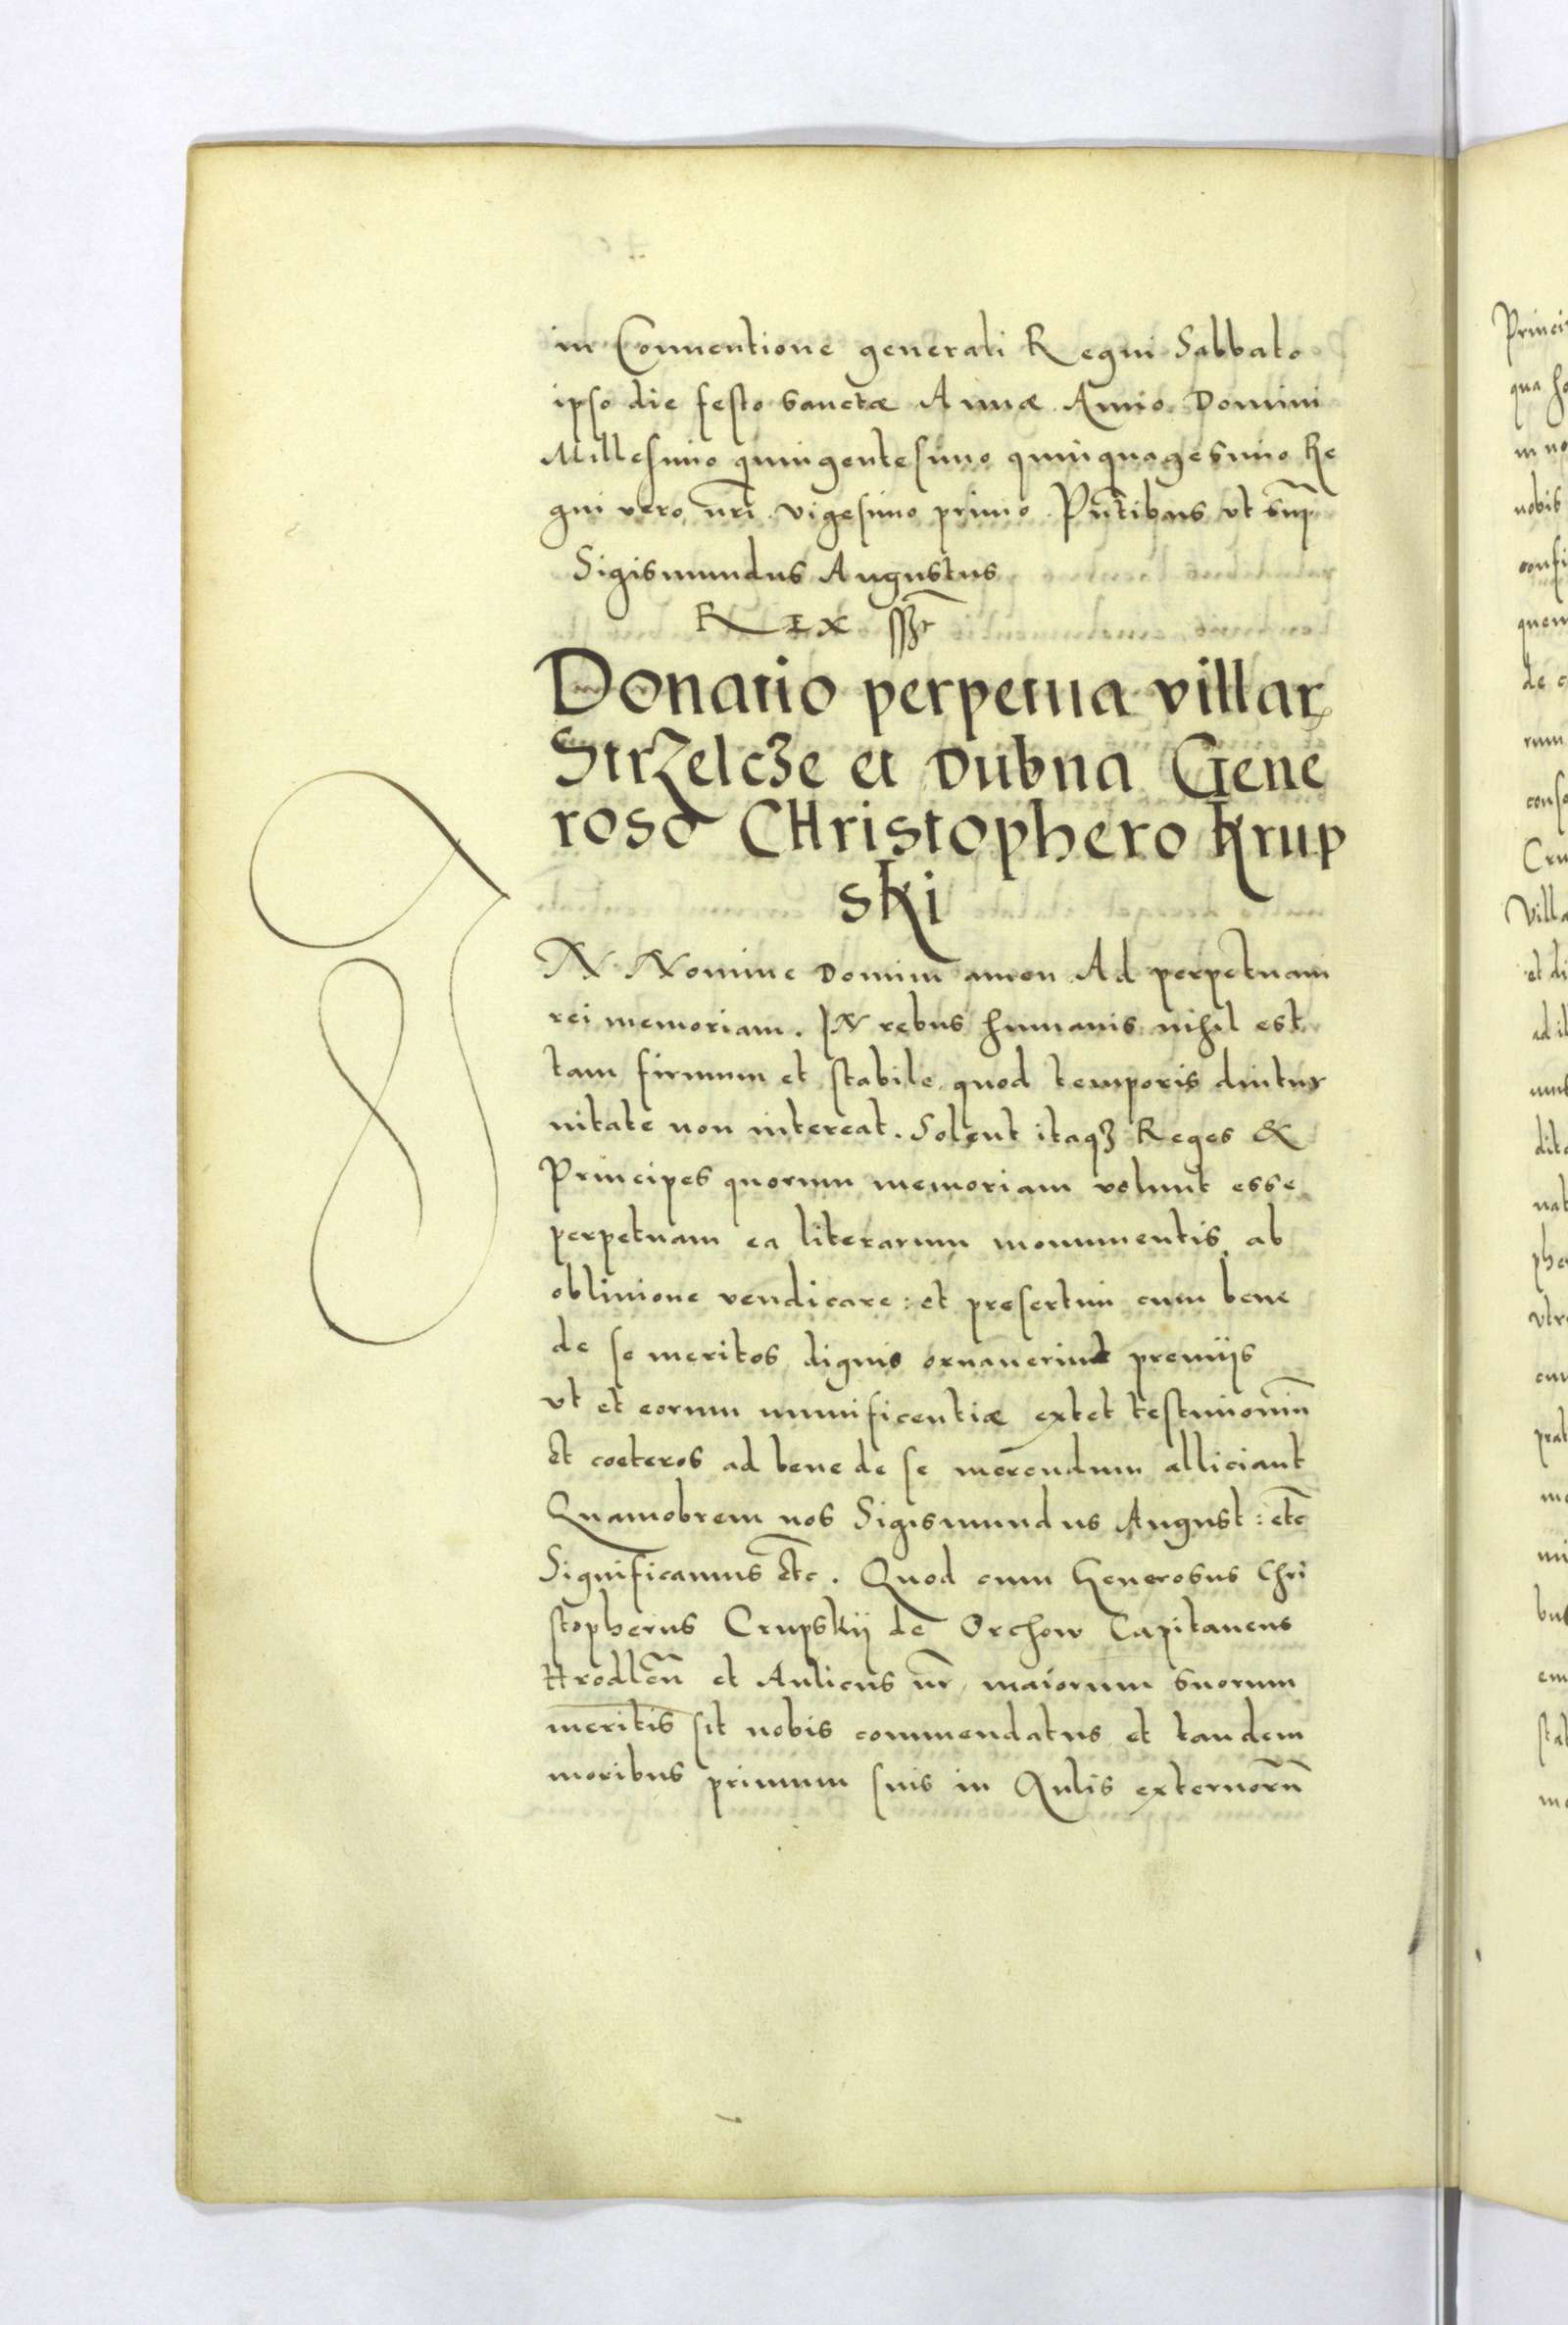 in Conuentione generali Regni Sabbato
ipso die festo sanctæ Annæ Anno Domini
Millesimo quingentesimo quinquagesimo Re
gni vero nr̃i vigesimo primo Pñtibus vt sup̃
Sigismundus Augustus
REX
Donatio perpetua villar
Strzelcze et Dubna Gene
roso Christophero Krup
ski
IN Nomine Domini amen Ad perpetuam
rei memoriam. IN rebus humanis nihil est
tam firmum et stabile quod temporis diutur
nitate non intereat. Solent itaqꝫ Reges &
Principes quorum memoriam volunt esse
perpetuam ea literarum monumentis ab
obliuione vendicare: et presertim cum bene
de se meritos dignis ornauerint premijs
vt et eorum munificentiæ extet testimoniũ
Et coeteros ad bene de se merendum alliciant
Quamobrem nos Sigismundus August: etc
Significamus Etc. Quod cum Generosus Chri
stopherus Crupskij de Orchow Capitaneus
Hrodleñ et Aulicus nr̃ maiorum suorum
meritis sit nobis commendatus et tandem
moribus primum suis in Aulis externorũ